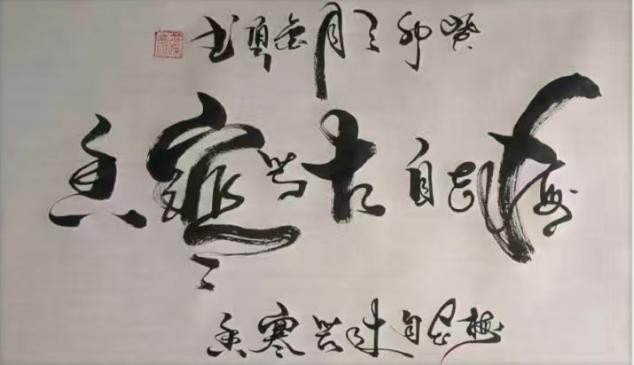 癸卯三月 书
梅花自来苦寒香
梅花自来苦寒香